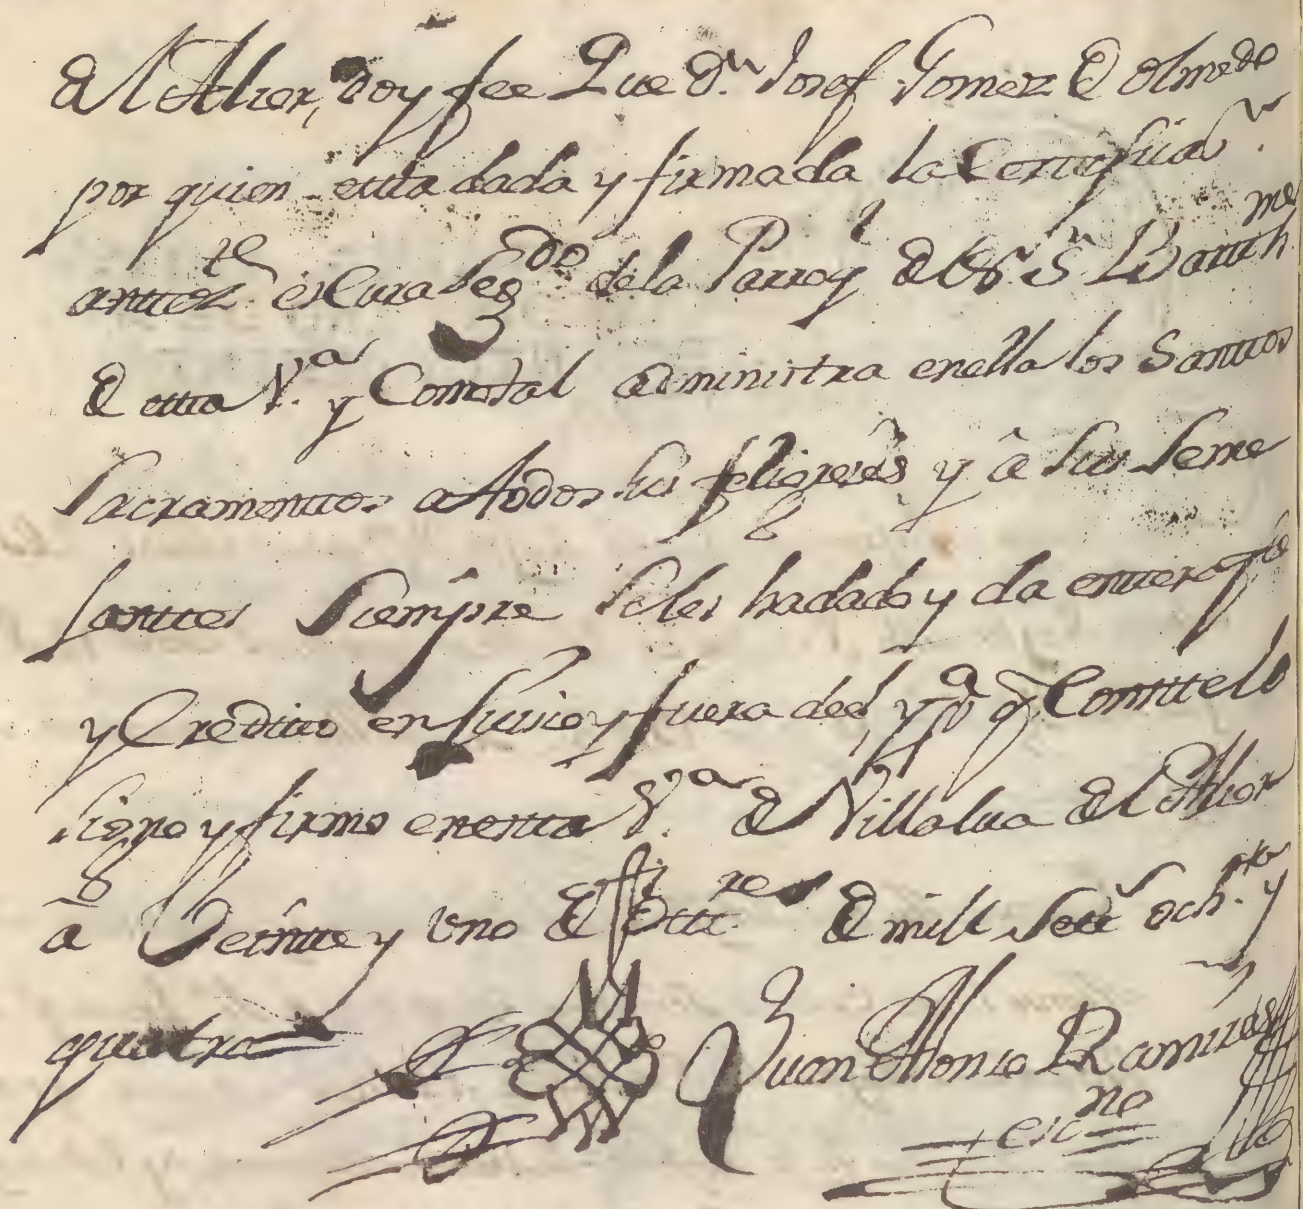 del Alcor, doy fee Que Dn. Josef Gomez de Olmedo
por quien esta dada y firmada la Certificaon.
anttezte es Cura Segdo. de la Parroql. de Sr. Sn. Bartthme
de esta Va. y Como tal administra en ella los Santtos
Sacramenttos a todos sus feligreses y â Sus Seme
janttes Siempre Se les ha dado y da entera fe
y Creditto en Juicio y fuera del, y pa. q. Conste lo
Signo y firmo en esta Va. de Villalva del Alcor
â Veintte y uno de Ottre. de mill Sett. ochta. y
quatro
Juan Alfonso Ramirez
escno